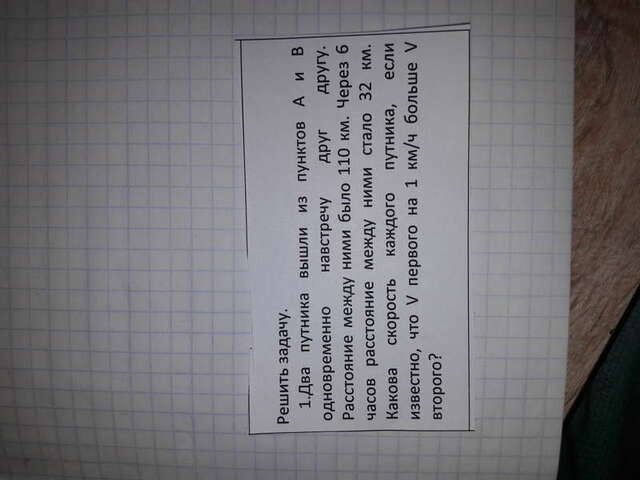 Решить задачу.
1.Два путника вышли из пунктов А и В
одновременно навстречу друг другу.
Расстояние между ними было 110 км. Через 6
часов расстояние между ними стало 32 км.
Какова скорость каждого путника, если
известно, что V первого на 1 км/ч больше V
второго?